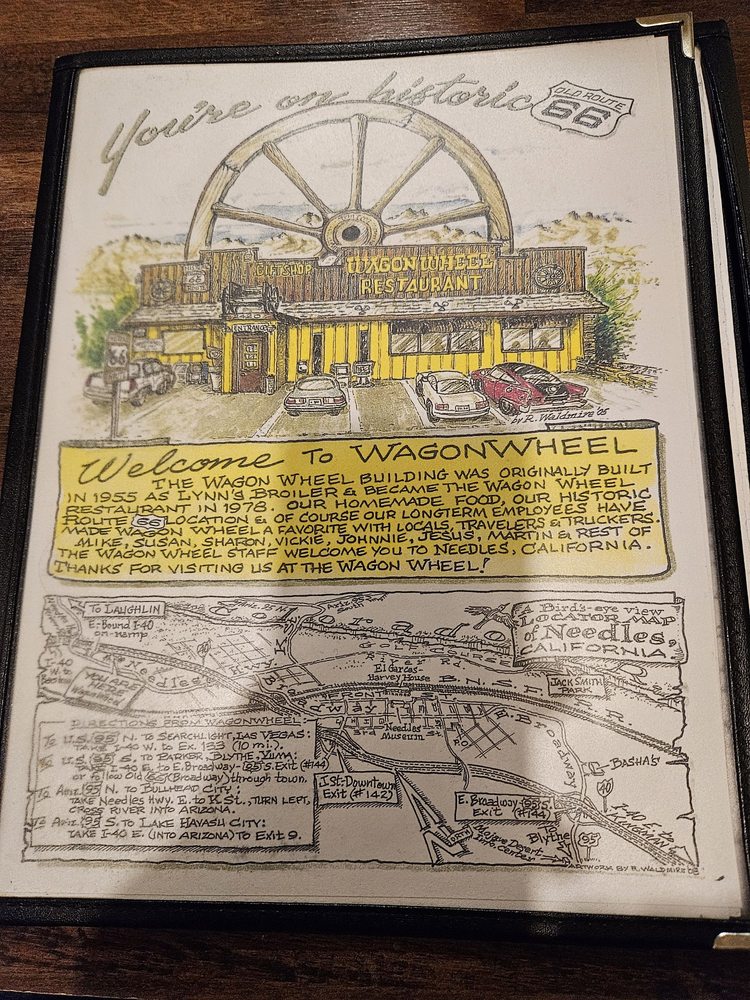 You're on historic
OLD ROUTE
66
GIFT SHOP
WAGON WHEEL
RESTAURANT
ENTRANCE
66
by R. Waldmire '05
Welcome TO WAGONWHEEL
THE WAGON WHEEL BUILDING WAS ORIGINALLY BUILT
IN 1955 AS LYNN'S BROILER & BECAME THE WAGON WHEEL
RESTAURANT IN 1978. OUR HOMEMADE FOOD, OUR HISTORIC
ROUTE 66 LOCATION & OF COURSE OUR LONGTERM EMPLOYEES HAVE
MADE WAGON WHEEL A FAVORITE WITH LOCALS, TRAVELERS & TRUCKERS.
MIKE, SUSAN, SHARON, VICKIE, JOHNNIE, JESUS, MARTIN & REST OF
THE WAGON WHEEL STAFF WELCOME YOU TO NEEDLES, CALIFORNIA.
THANKS FOR VISITING US AT THE WAGON WHEEL!
A Bird's-eye view
LOCATOR MAP
of Needles,
CALIFORNIA.
To LAUGHLIN
E-Bound I-40
on-ramp
I-40 W.
to Barstow
40
Colorado
River Rd.
El Garces-
Harvey House
B.N.S.F. R.R.
JACK SMITH
PARK
FRONT
Broadway
3rd
Needles
Museum
P.O.
E. Broadway
BASHA'S
40
I-40 E. to
KINGMAN
DIRECTIONS FROM WAGONWHEEL:
To U.S. 95 N. TO SEARCHLIGHT, LAS VEGAS:
TAKE I-40 W. to Ex. 133 (10 mi.).
To U.S. 95 S. TO PARKER, BLYTHE, YUMA:
Take I-40 E. to E. Broadway-95 S. Exit (#144)
or follow Old 66 (Broadway) through town.
To Ariz. 95 N. TO BULLHEAD CITY:
TAKE Needles Hwy. E. to K St., TURN LEFT,
CROSS RIVER INTO ARIZONA.
To Ariz. 95 S. TO LAKE HAVASU CITY:
TAKE I-40 E. (INTO ARIZONA) TO EXIT 9.
J St.-Downtown
Exit (#142)
E. Broadway-95 S.
Exit (#144)
NORTH
Mojave Desert
Info. Center
Blythe
95
ARTWORK BY R. WALDMIRE '03